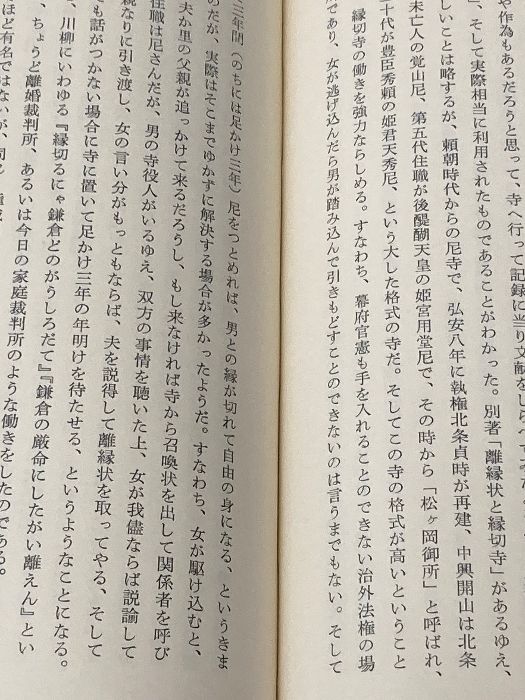 や作為もあるだろうと思って、寺へ行って記録に当り文献をしら
、そして実際相当に利用されたものであることがわかった。別著「離縁状と縁切寺」があるゆえ、
しいことは略するが、頼朝時代からの尼寺で、弘安八年に執権北条貞時が再建、中興開山は北条
未亡人の覚山尼、第五代住職が後醍醐天皇の姫宮用堂尼で、その時から「松ヶ岡御所」と呼ばれ、
二十代が豊臣秀頼の姫君天秀尼、という大した格式の寺だ。そしてこの寺の格式が高いということ
縁切寺の働きを強力ならしめる。すなわち、幕府官憲も手を入れることのできない治外法権の場
であり、女が逃げ込んだら男が踏み込んで引きもどすことのできないのは言うまでもない。そして
三年間（のちには足かけ三年）尼をつとめれば、男との縁が切れて自由の身になる、というきま
のだが、実際はそこまでゆかずに解決する場合が多かったようだ。すなわち、女が駆け込むと、
夫か里の父親が追っかけて来るだろうし、もし来なければ寺から召喚状を出して関係者を呼び
住職は尼さんだが、男の寺役人がいるゆえ、双方の事情を聴いた上、女が我儘ならば説諭して
親なりに引き渡し、女の言い分がもっともならば、夫を説得して離縁状を取ってやる、そして
も話がつかない場合に寺に置いて足かけ三年の年明けを待たせる、というようなことになる。
、川柳にいわゆる『縁切るにゃ鎌倉どのがうしろだて』『鎌倉の厳命にしたがい離えん』とい
、ちょうど離婚裁判所、あるいは今日の家庭裁判所のような働きをしたのである。
ほど有名ではないが、同じ